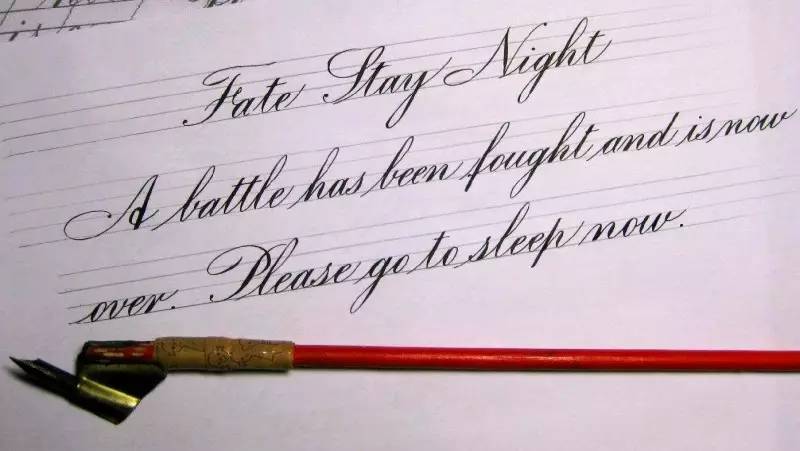 Fate Stay Night
A battle has been fought and is now
over. Please go to sleep now.